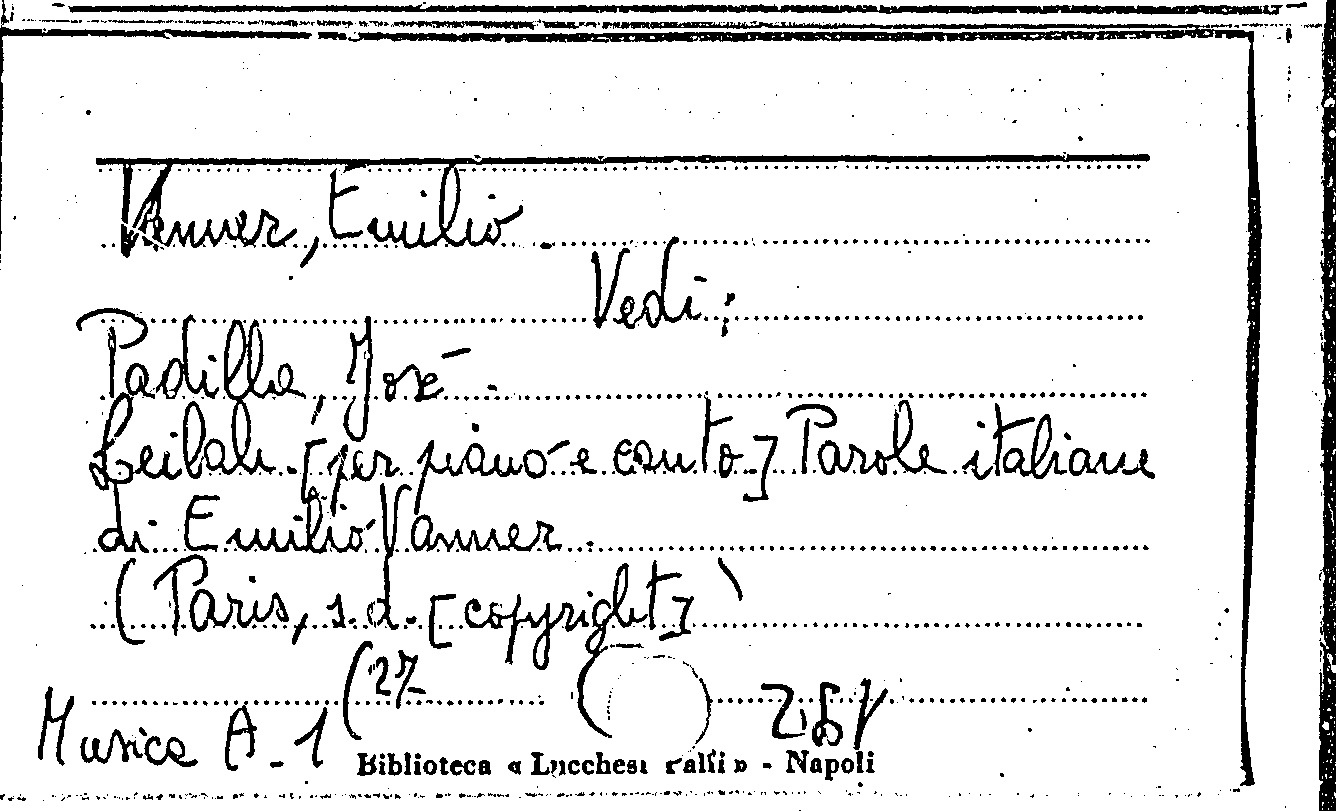 Vanner, Emilio.
Vedi:
Padilla, José.
Leilah. [per piano e canto.] Parole italiane
di Emilio Vanner.
(Paris, s.d. [copyright]
Musica A-1 (27
Biblioteca « Lucchesi Palli » - Napoli